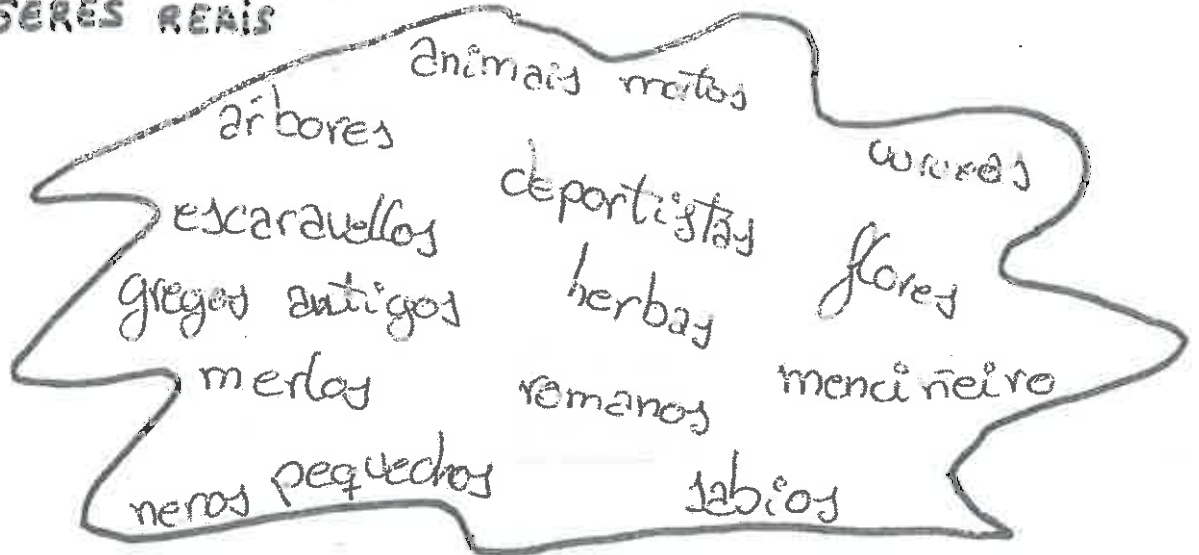 SERES REAIS
animais mortos
árbores
curuxas
deportistas
escaravellos
flores
gregos antigos
herbas
merlos
romanos
menciñeiro
nenos pequechos
sabios